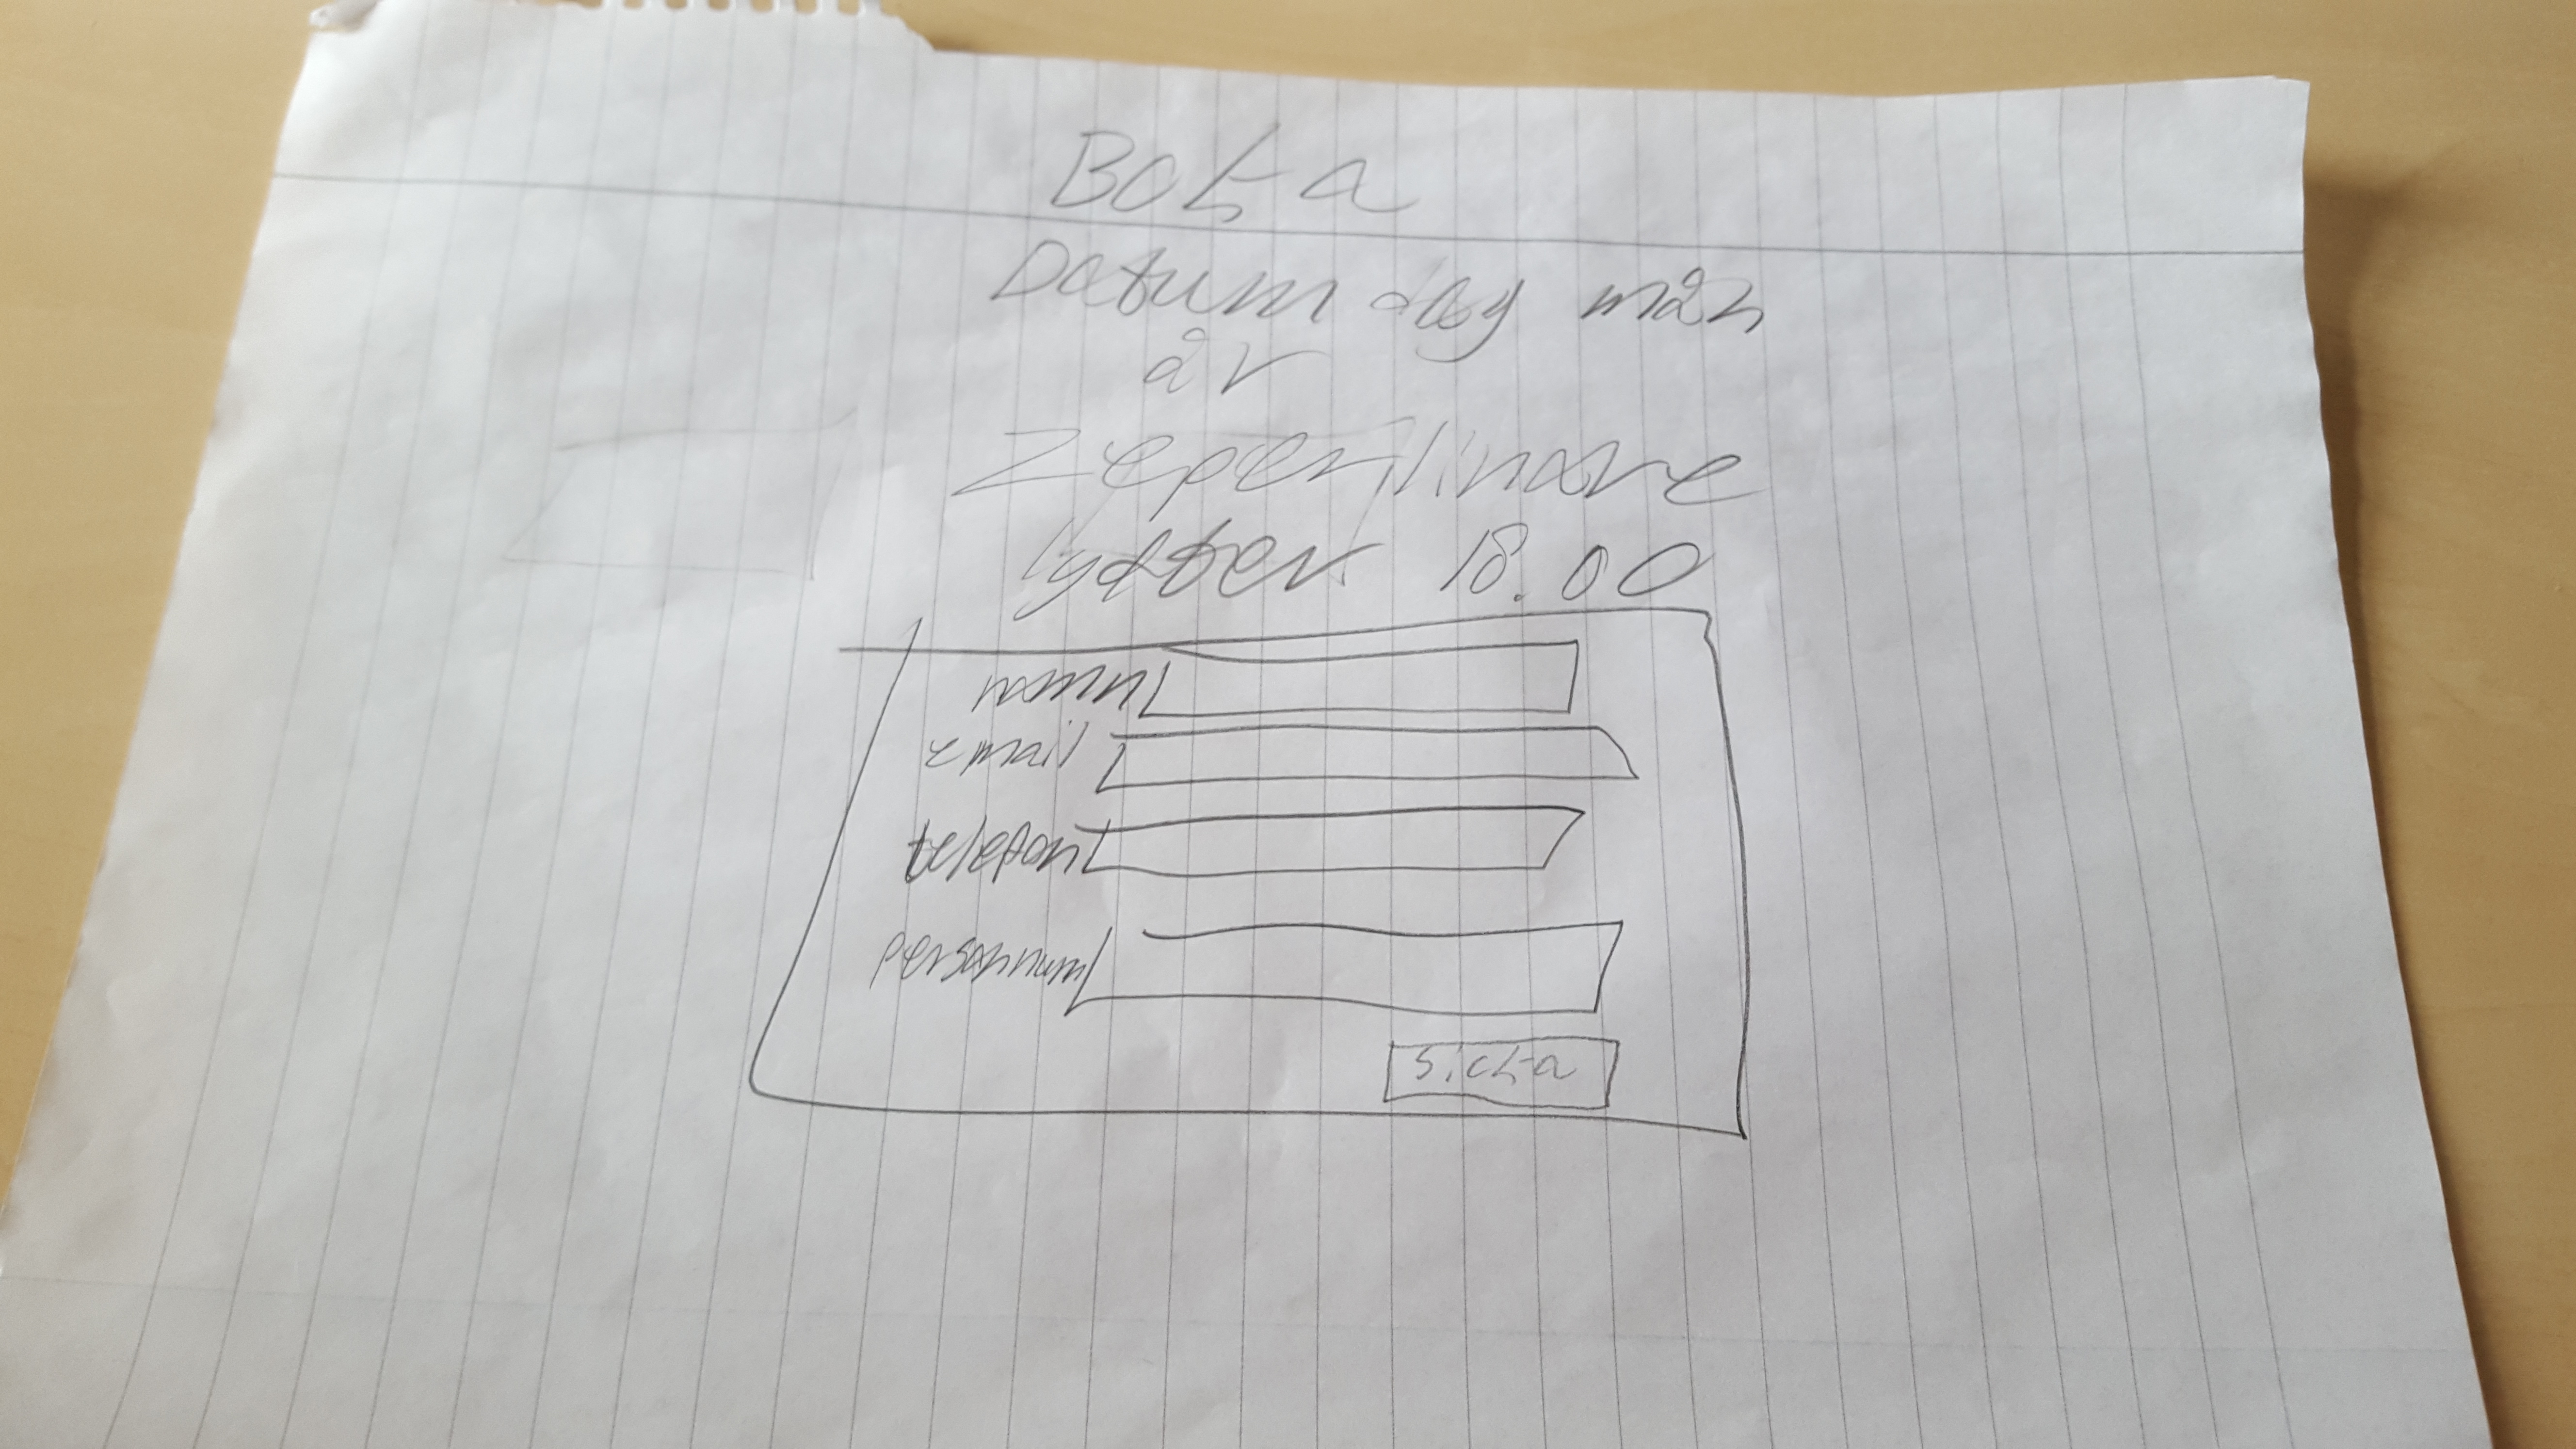 Boka
Datum dag mån
år
Zeperlinare
lyfter 18.00
namn
email
telefon
personnum
sicka